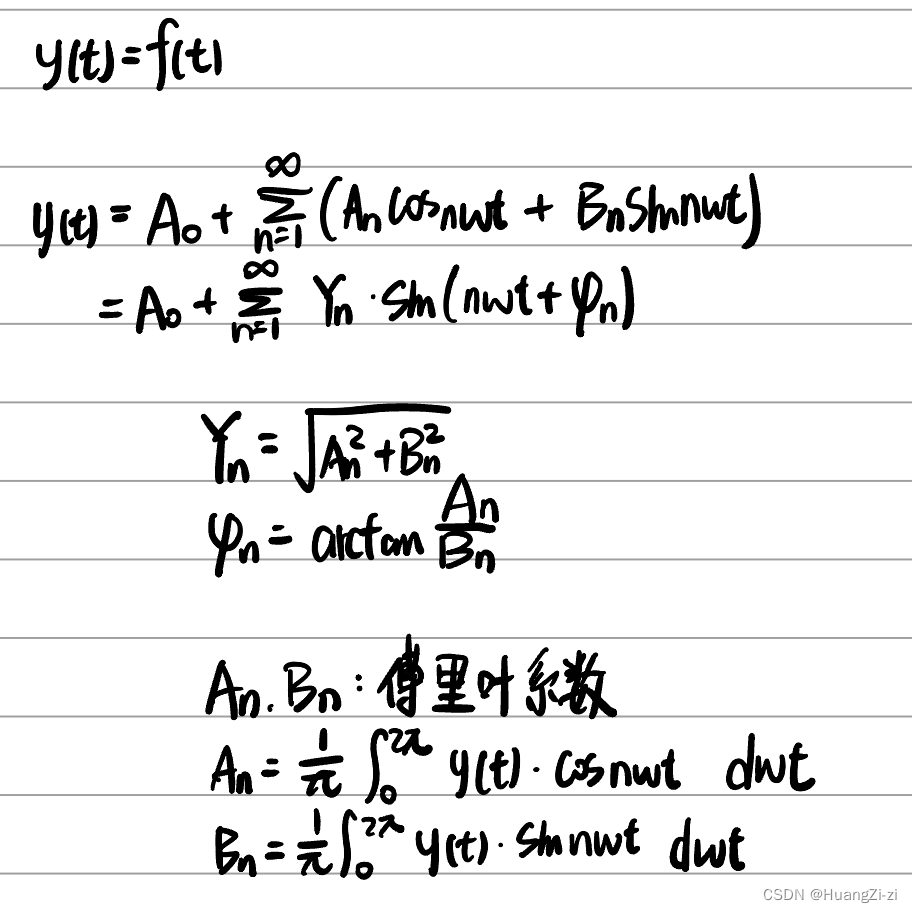 y(t)=f(t)
y(t) = A₀ + ∑_{n=1}^{∞} (Aₙ cosnwt + Bₙ sinnwt)
= A₀ + ∑_{n=1}^{∞} Yₙ · sin(nwt + φₙ)
Yₙ = √(Aₙ² + Bₙ²)
φₙ = arctan Aₙ/Bₙ
Aₙ. Bₙ : 傅里叶系数
Aₙ = 1/π ∫₀^{2π} y(t) · cosnwt dwt
Bₙ = 1/π ∫₀^{2π} y(t) · sinnwt dwt
CSDN @HuangZi-zi